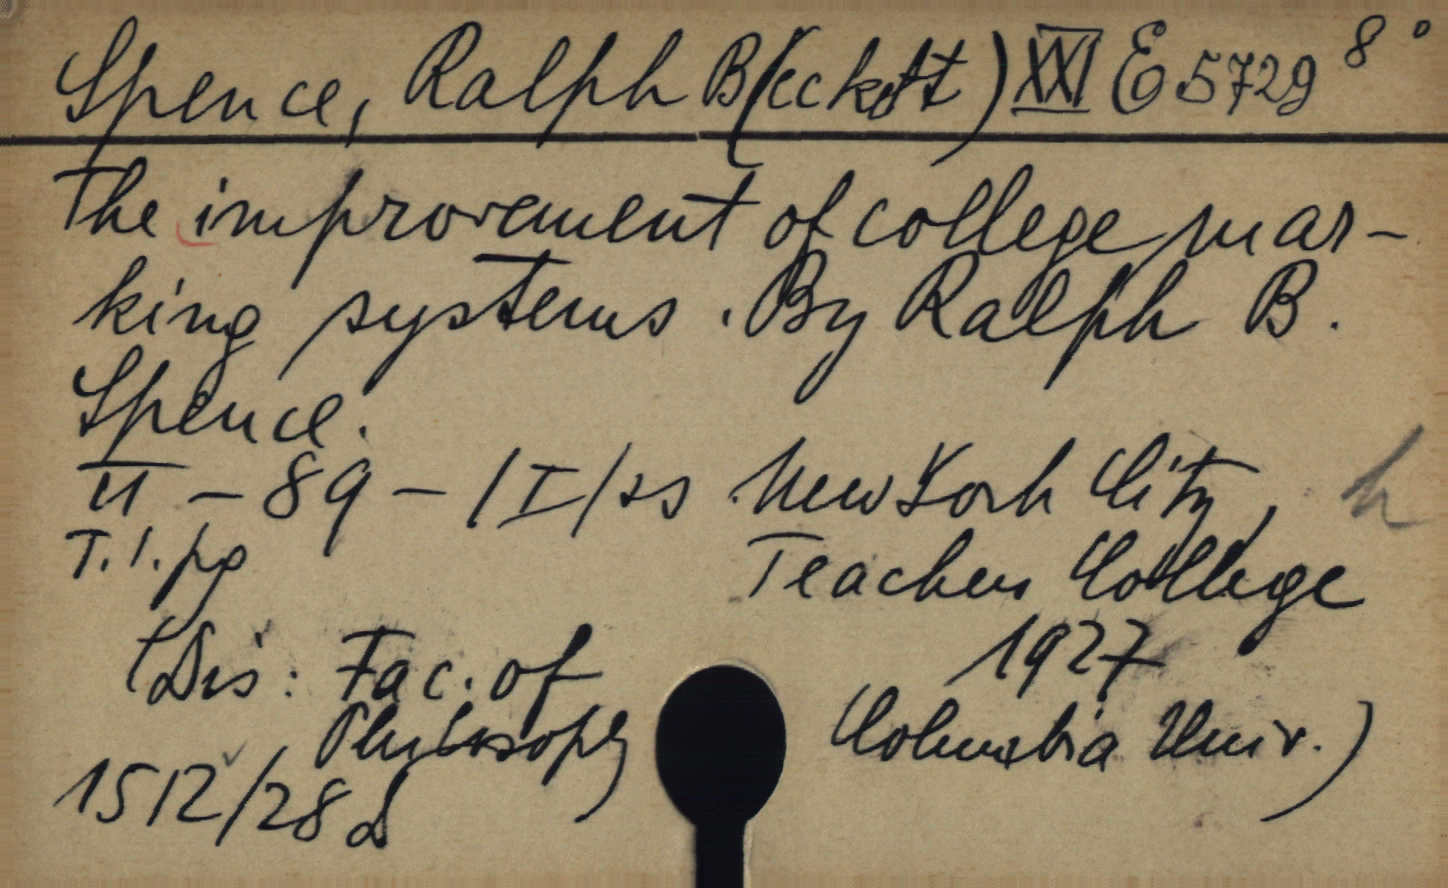 Spence, Ralph B(eckett) XXI E 5729 8°
The improvement of college mar-
king systems. By Ralph B.
Spence.
II - 89 - /I/ss New York City, h
T.1.pg Teachers College
1927
(Dis: Fac. of
Philosophy Columbia Univ.)
1512/28 d